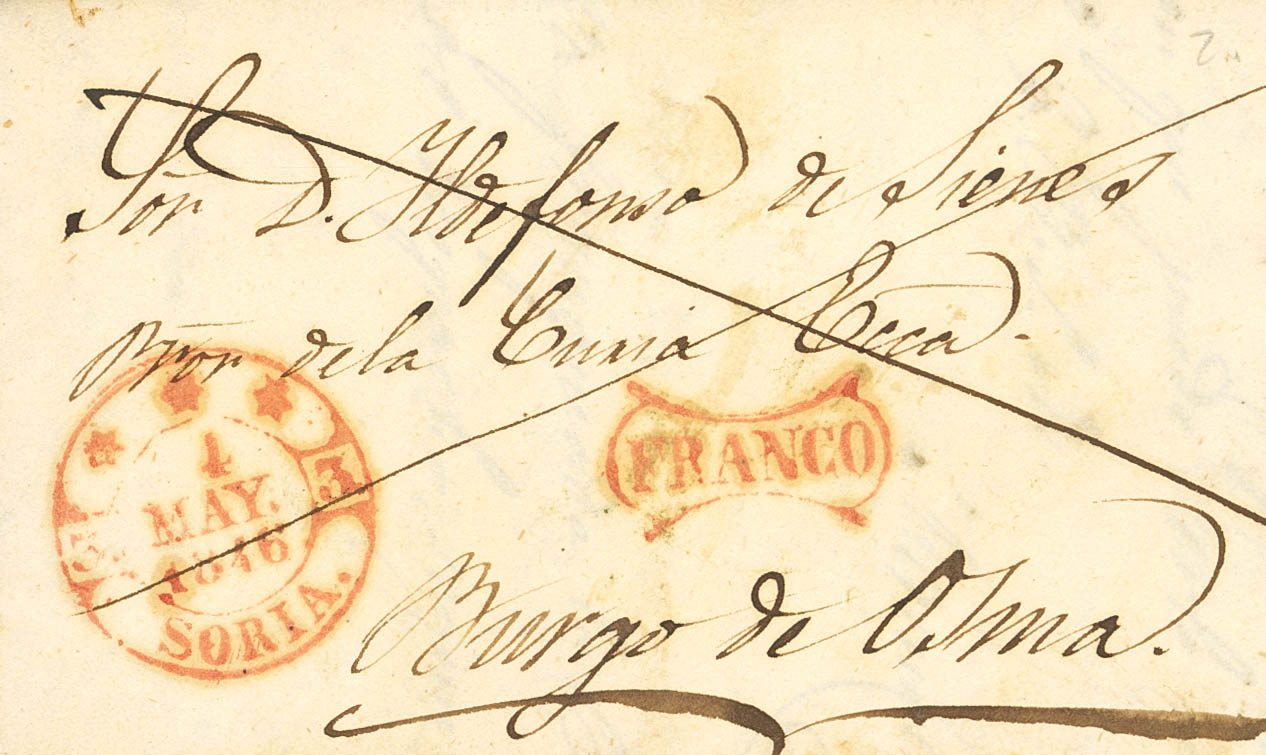 Sor D. Ildefonso de Sienes
Pror de la Curia Ecca.
FRANCO
3 3
4
MAY.
1846
SORIA.
Burgo de Osma.
2